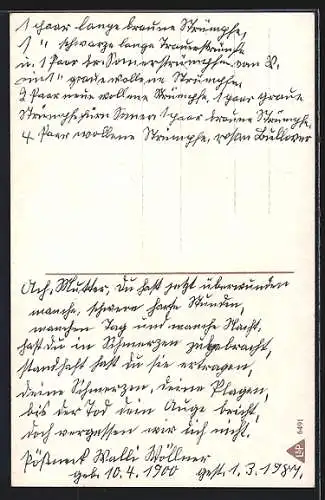 1 paar lange braune Strümpfe,
1 " schwarze lange Trauerstrümpfe
u. 1 Paar br. Somerstrümpfe von
mit gradewollene Strümpfe.
2 Paar neue wollene Strümpfe, 1 paar graue
Strümpfe fürn Somer 1 paar braune Strümpfe,
4 Paar wollene Strümpfe, rosan Bullover
Ach, Mutter, Du hast jetzt überwunden
manche, schwere harte Stunden,
manchen Tag und manche Nacht,
hast du in Schmerzen zugebracht,
standhaft hast du sie ertragen,
deine Schmerzen, deine Plagen,
bis der Tod dein Auge bricht,
doch vergessen wir dich nicht.
Pößneck Walli Wöllner
geb. 10.4.1900 gest. 1.3.1987.
L&P 6491